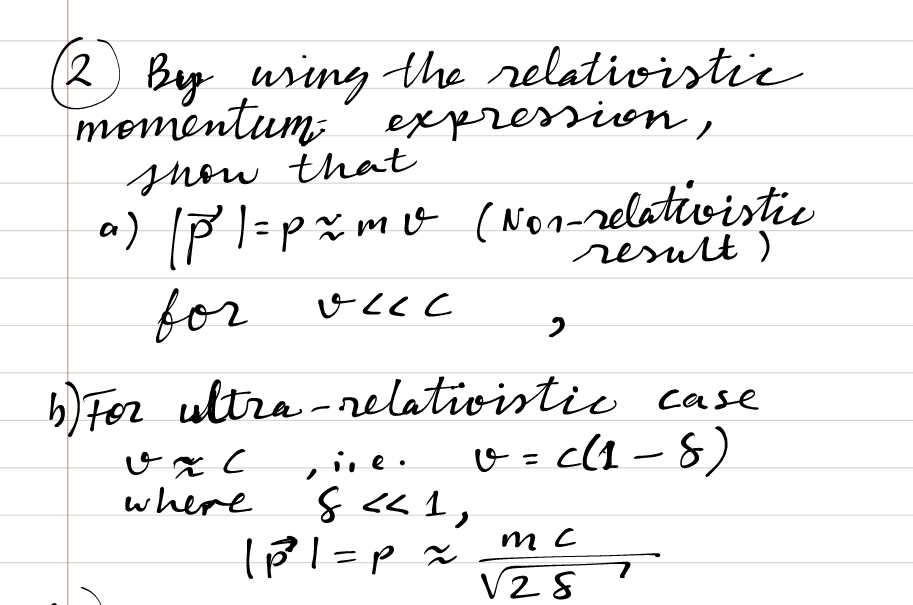 ② By using the relativistic
momentum expression,
show that
a) |p⃗| = p ≈ m v (Non-relativistic
result)
for v << c ,
b) For ultra-relativistic case
v ≈ c , i.e. v = c(1 − δ)
where δ << 1,
|p⃗| = p ≈ mc / √2δ